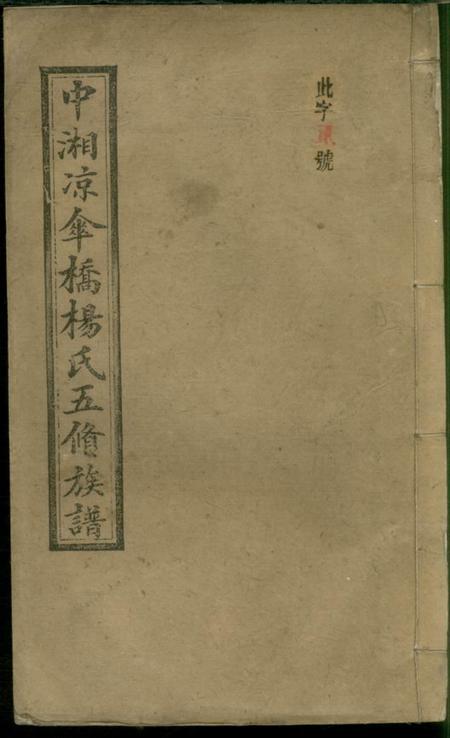 此字號
中湘凉傘橋楊氏五脩族譜